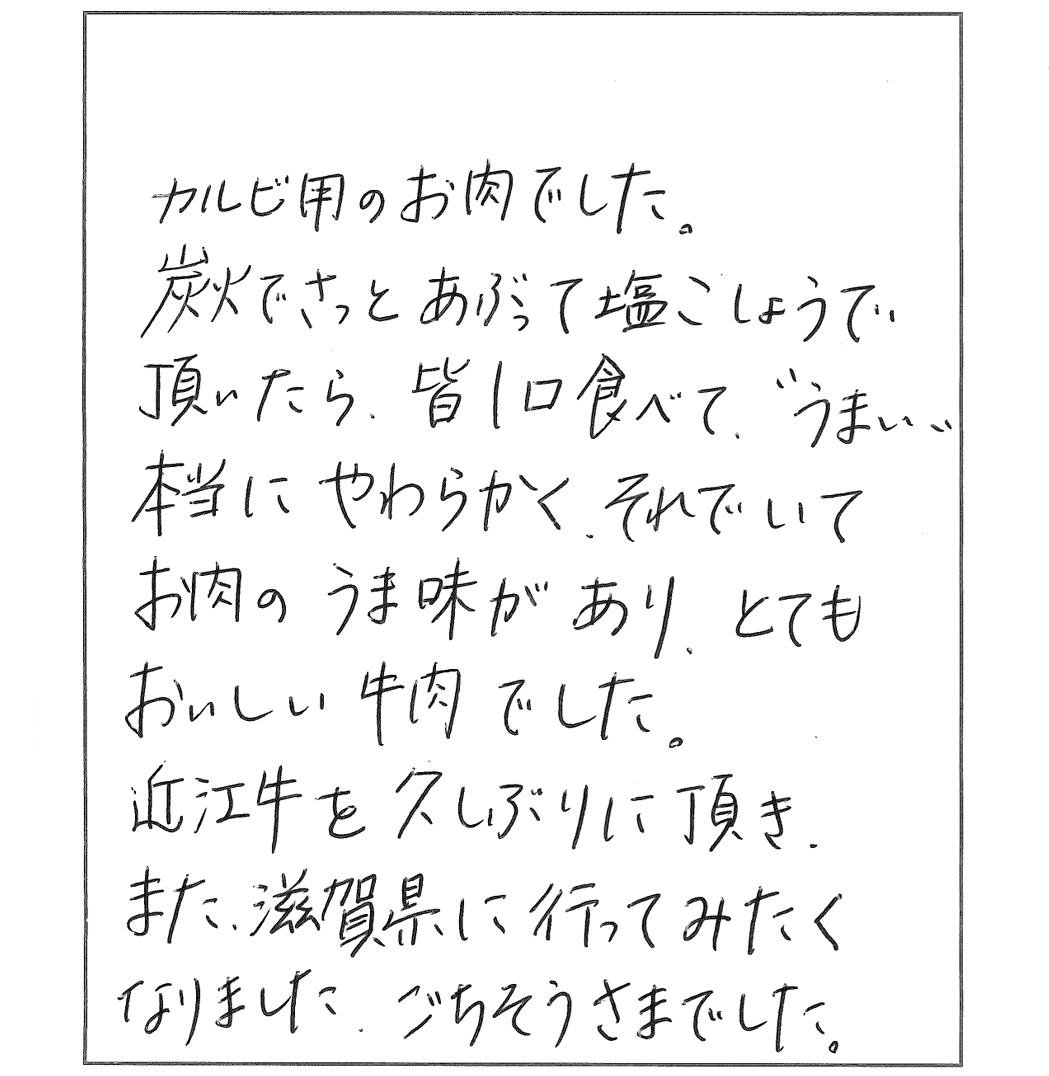 カルビ用のお肉でした。
炭火でさっとあぶって塩こしょうで
頂いたら、皆1口食べて、〝うまい〟
本当にやわらかく、それでいて
お肉のうま味があり、とても
おいしい牛肉でした。
近江牛を久しぶりに頂き、
また、滋賀県に行ってみたく
なりました、ごちそうさまでした。